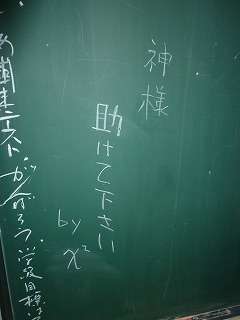 神様
助けて下さい
by x²
テストがんばろう 学級目標は